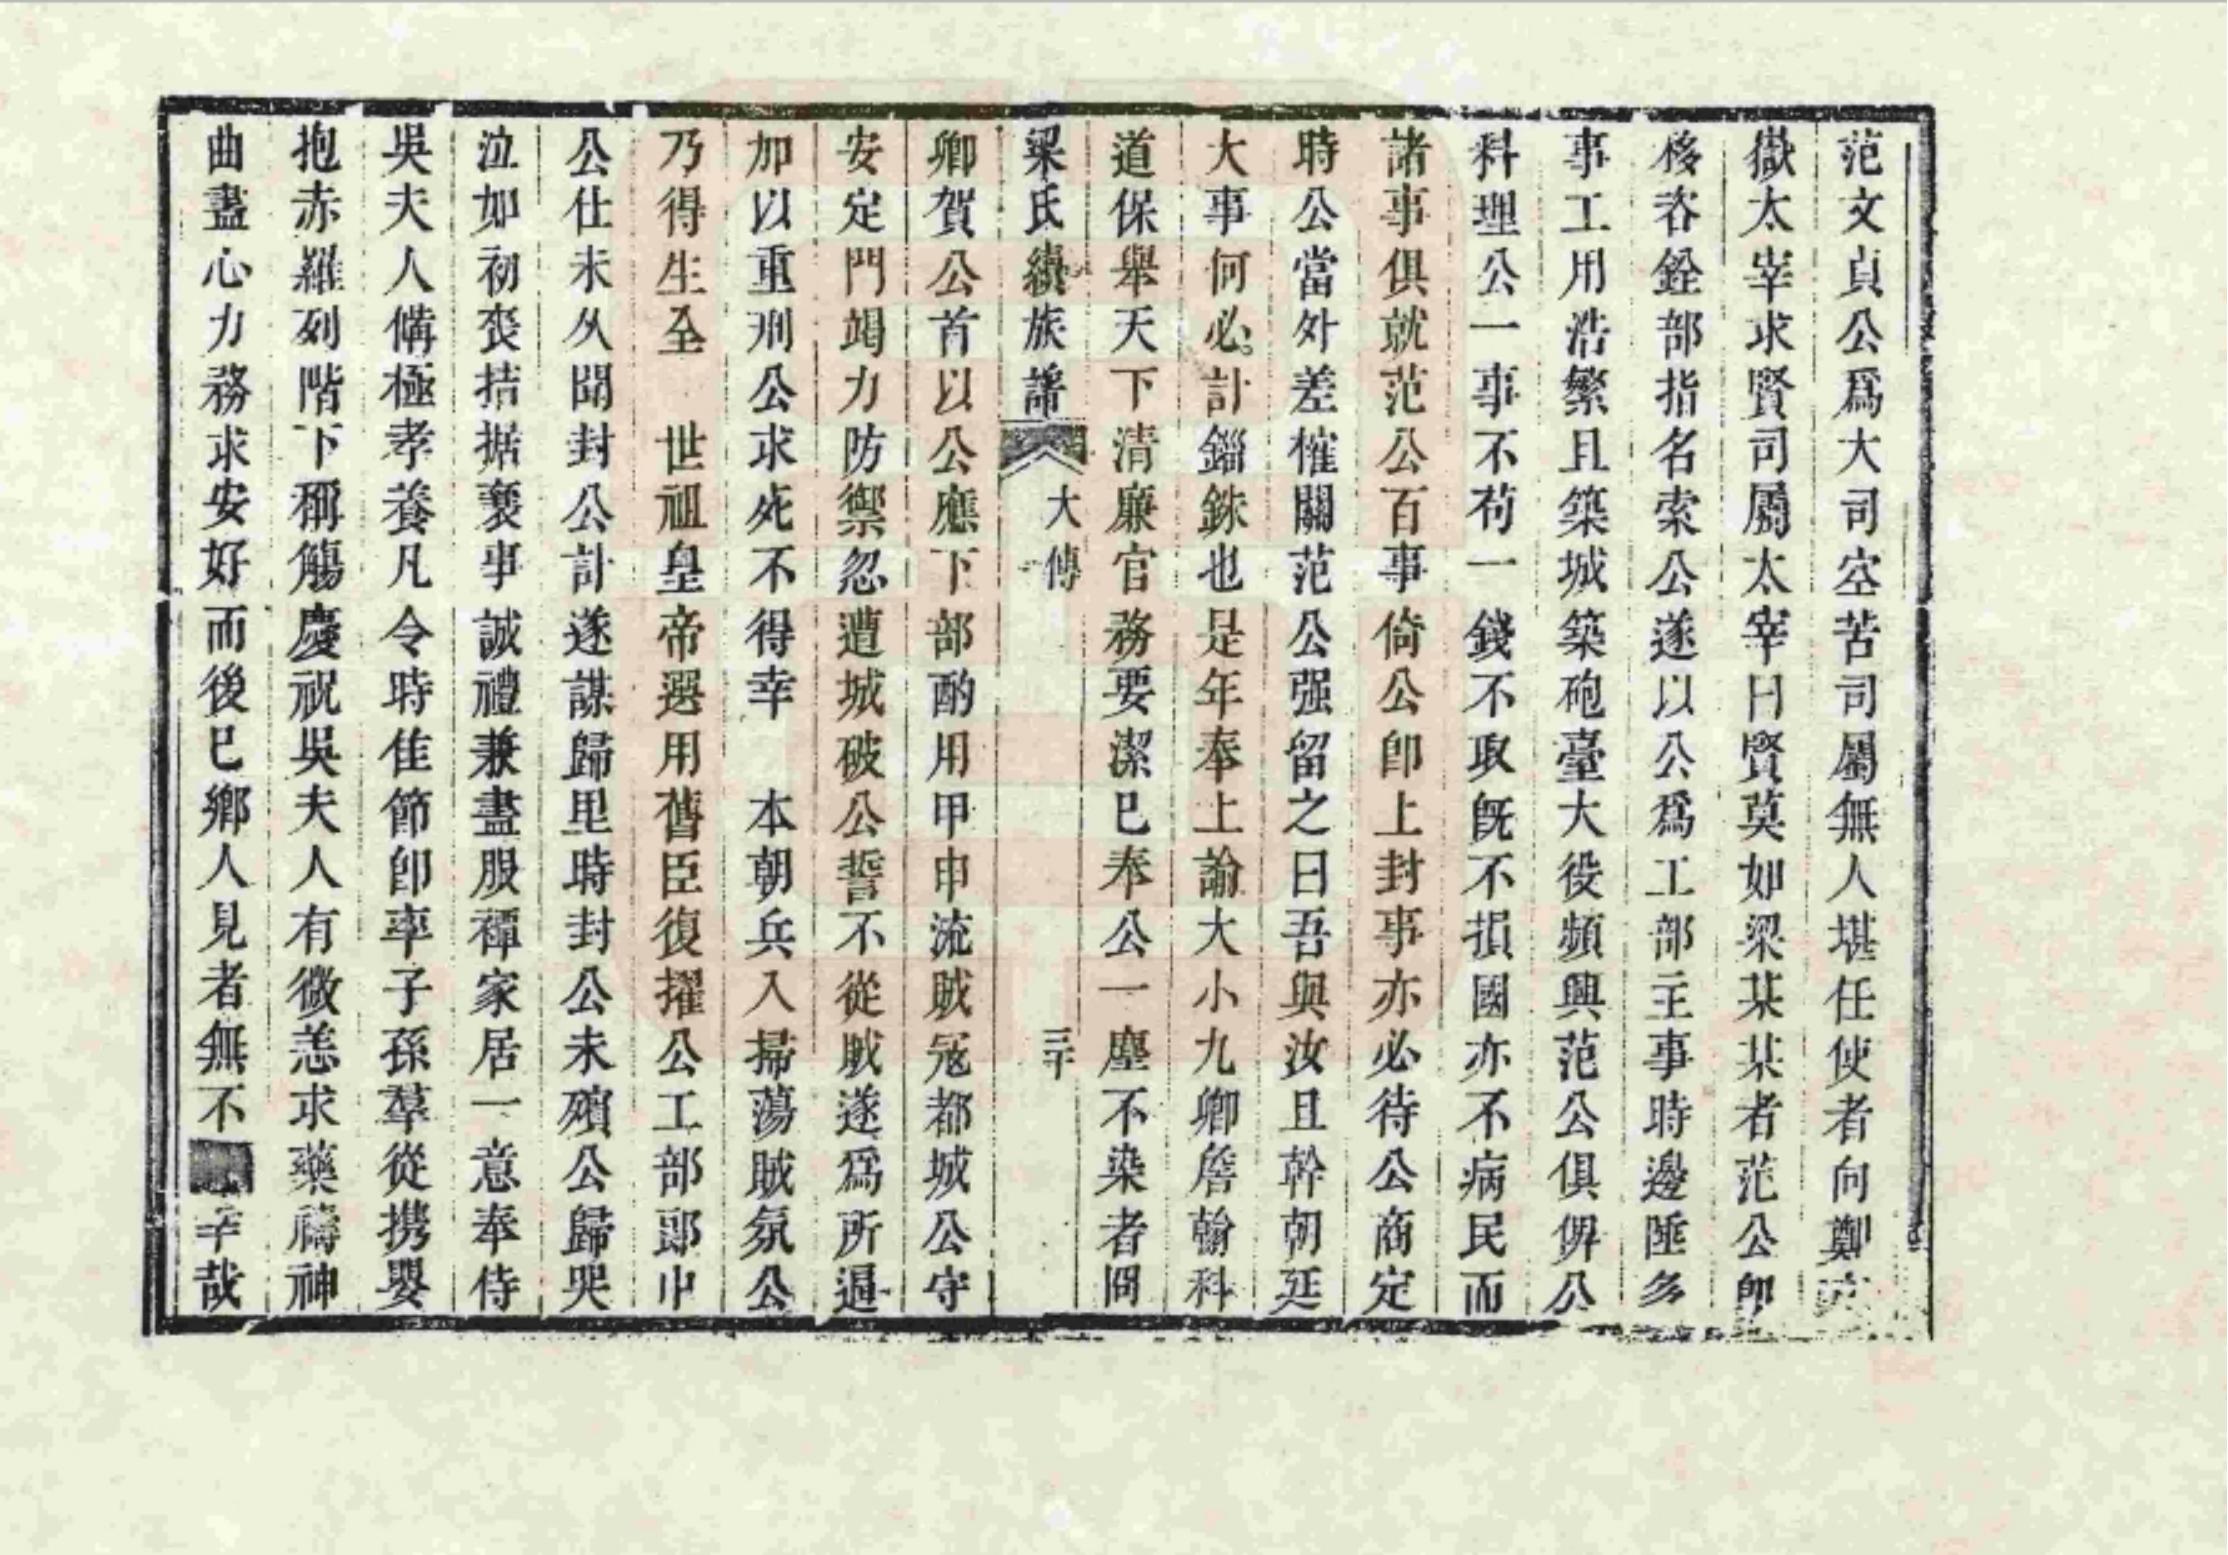 范文貞公爲大司空苦司屬無人堪任使者向鄭
嶽太宰求賢司屬太宰曰賢莫如梁某某者范公卽
移咨銓部指名索公遂以公爲工部主事時邊陲多
事工用浩繁且築城築砲臺大役頻興范公俱俾公
料理公一事不苟一錢不取旣不損國亦不病民而
諸事俱就范公百事倚公卽上封事亦必待公商定
時公當外差榷關范公强留之曰吾與汝且幹朝廷
大事何必計錙銖也是年奉上諭大小九卿詹翰科
道保舉天下淸廉官務要潔已奉公一塵不染者冏
梁氏續族譜 大傳 三十
卿賀公首以公應下部酌用甲申流賊冦都城公守
安定門竭力防禦忽遭城破公誓不從賊遂爲所逼
加以重刑公求死不得幸 本朝兵入掃蕩賊氛公
乃得生全 世祖皇帝選用舊臣復擢公工部郎中
公仕未久聞封公訃遂謀歸里時封公未殯公歸哭
泣如初喪拮据襄事誠禮兼盡服禫家居一意奉侍
吳夫人備極孝養凡令時佳節卽率子孫羣從携嬰
抱赤羅列階下稱觴慶祝吳夫人有微恙求藥禱神
曲盡心力務求安好而後已鄉人見者無不 哉